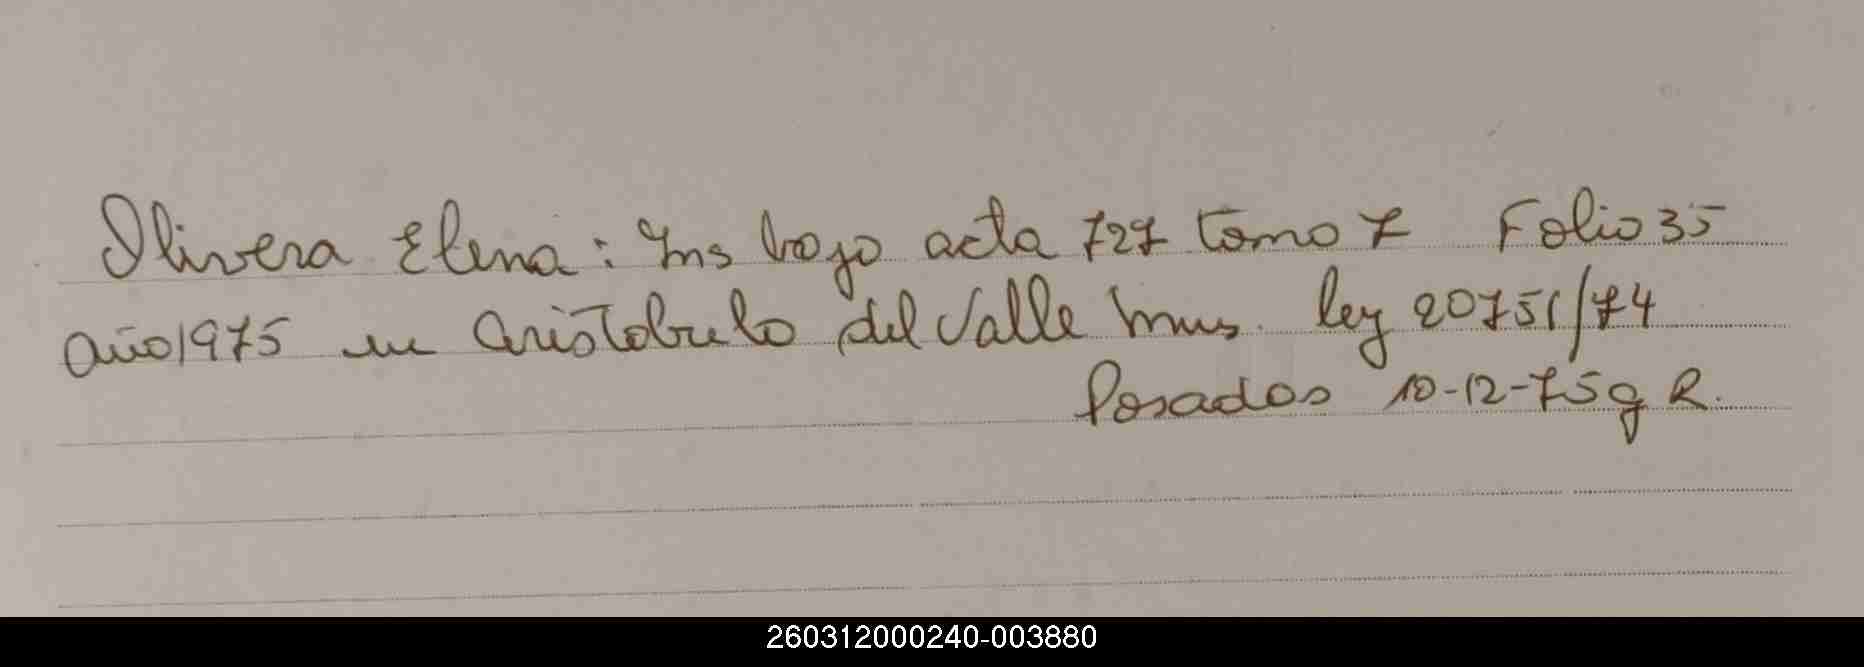 Olivera Elena: Ins bajo acta 727 tomo 7 Folio 35
año 1975 en Aristobulo del Valle Mnes. ley 20751/74
Posadas 10-12-75 g R.
260312000240-003880